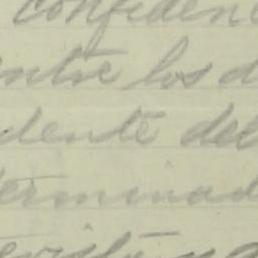 confidenc
entre los d
dente del
terminad